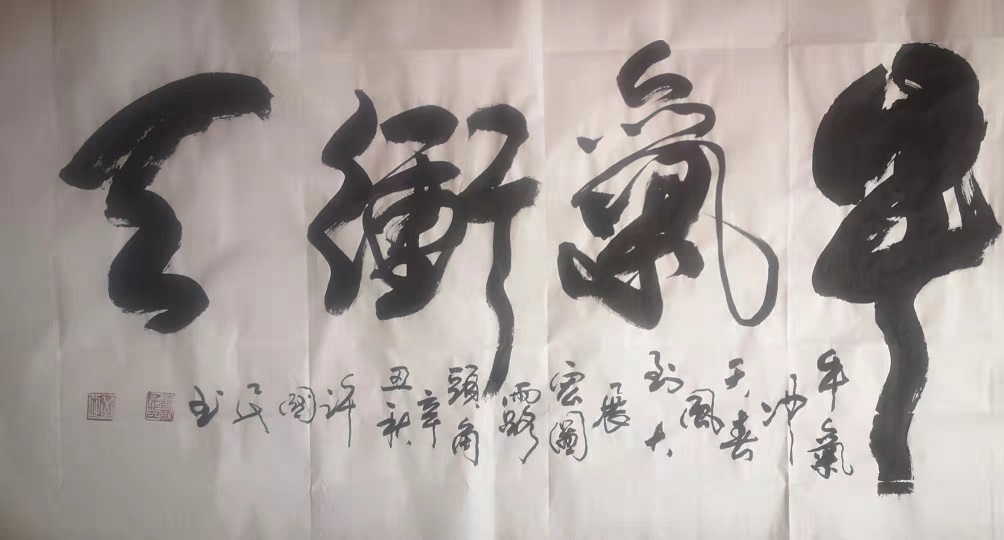 牛氣衝天
牛氣
冲
天春
風
到大
展
宏圖
露
頭角
辛
丑秋
許
國
民
书